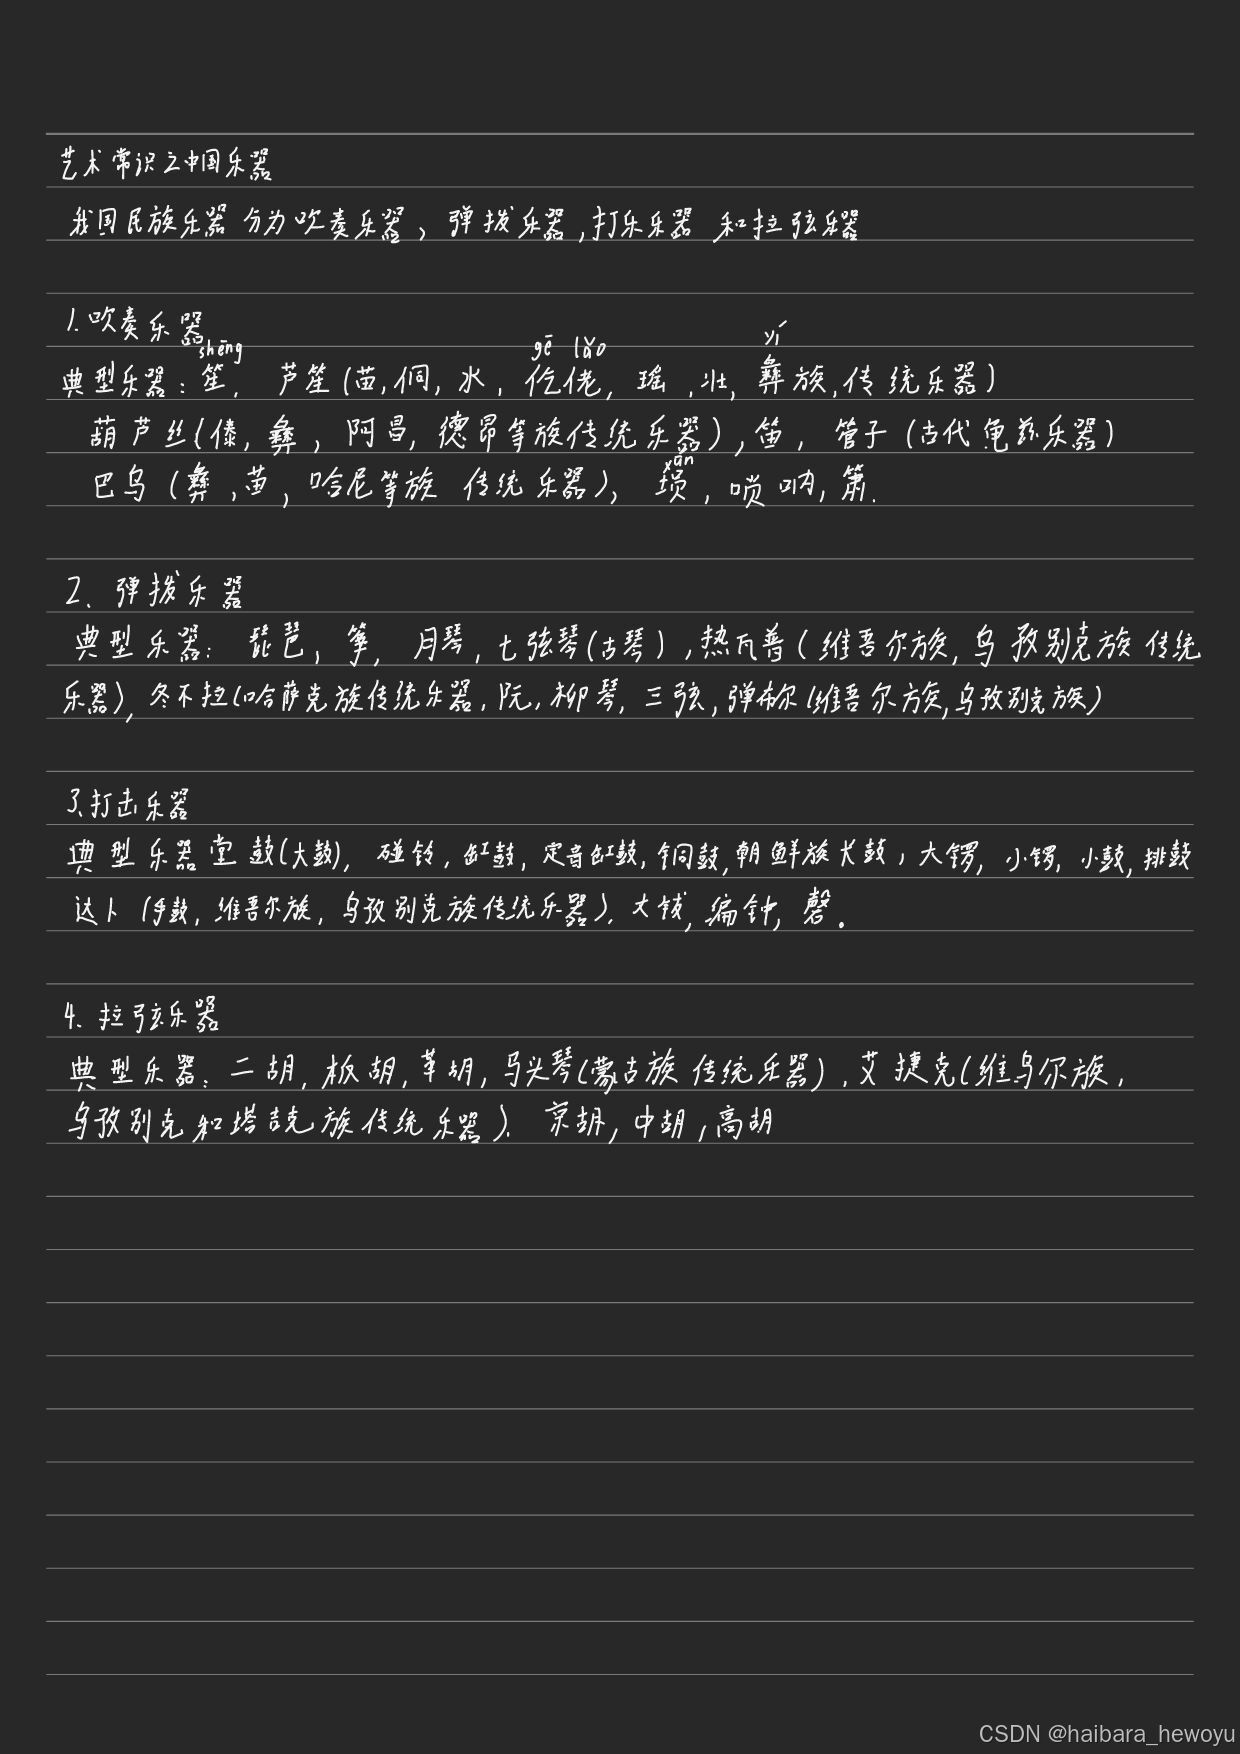 艺术常识之中国乐器
我国民族乐器分为吹奏乐器、弹拨乐器,打乐乐器和拉弦乐器
1.吹奏乐器
shēng gē lǎo yí
典型乐器:笙, 芦笙(苗,侗,水,仡佬,瑶,壮,彝族,传统乐器)
葫芦丝(傣,彝,阿昌,德昂等族传统乐器),笛,管子(古代龟兹乐器)
xūn
巴乌(彝,苗,哈尼等族传统乐器), 埙,唢呐,箫.
2、弹拨乐器
典型乐器: 琵琶,筝,月琴,七弦琴(古琴),热瓦普(维吾尔族,乌孜别克族传统
乐器),冬不拉(哈萨克族传统乐器,阮,柳琴,三弦,弹布尔(维吾尔族,乌孜别克族)
3.打击乐器
典型乐器堂鼓(大鼓),碰铃,缸鼓,定音缸鼓,铜鼓,朝鲜族长鼓,大锣,小锣,小鼓,排鼓
达卜(手鼓,维吾尔族,乌孜别克族传统乐器).大钹,编钟,磬.
4.拉弦乐器
典型乐器:二胡,板胡,革胡,马头琴(蒙古族传统乐器).艾捷克(维乌尔族,
乌孜别克和塔吉克族传统乐器).京胡,中胡,高胡
CSDN @haibara_hewoyu